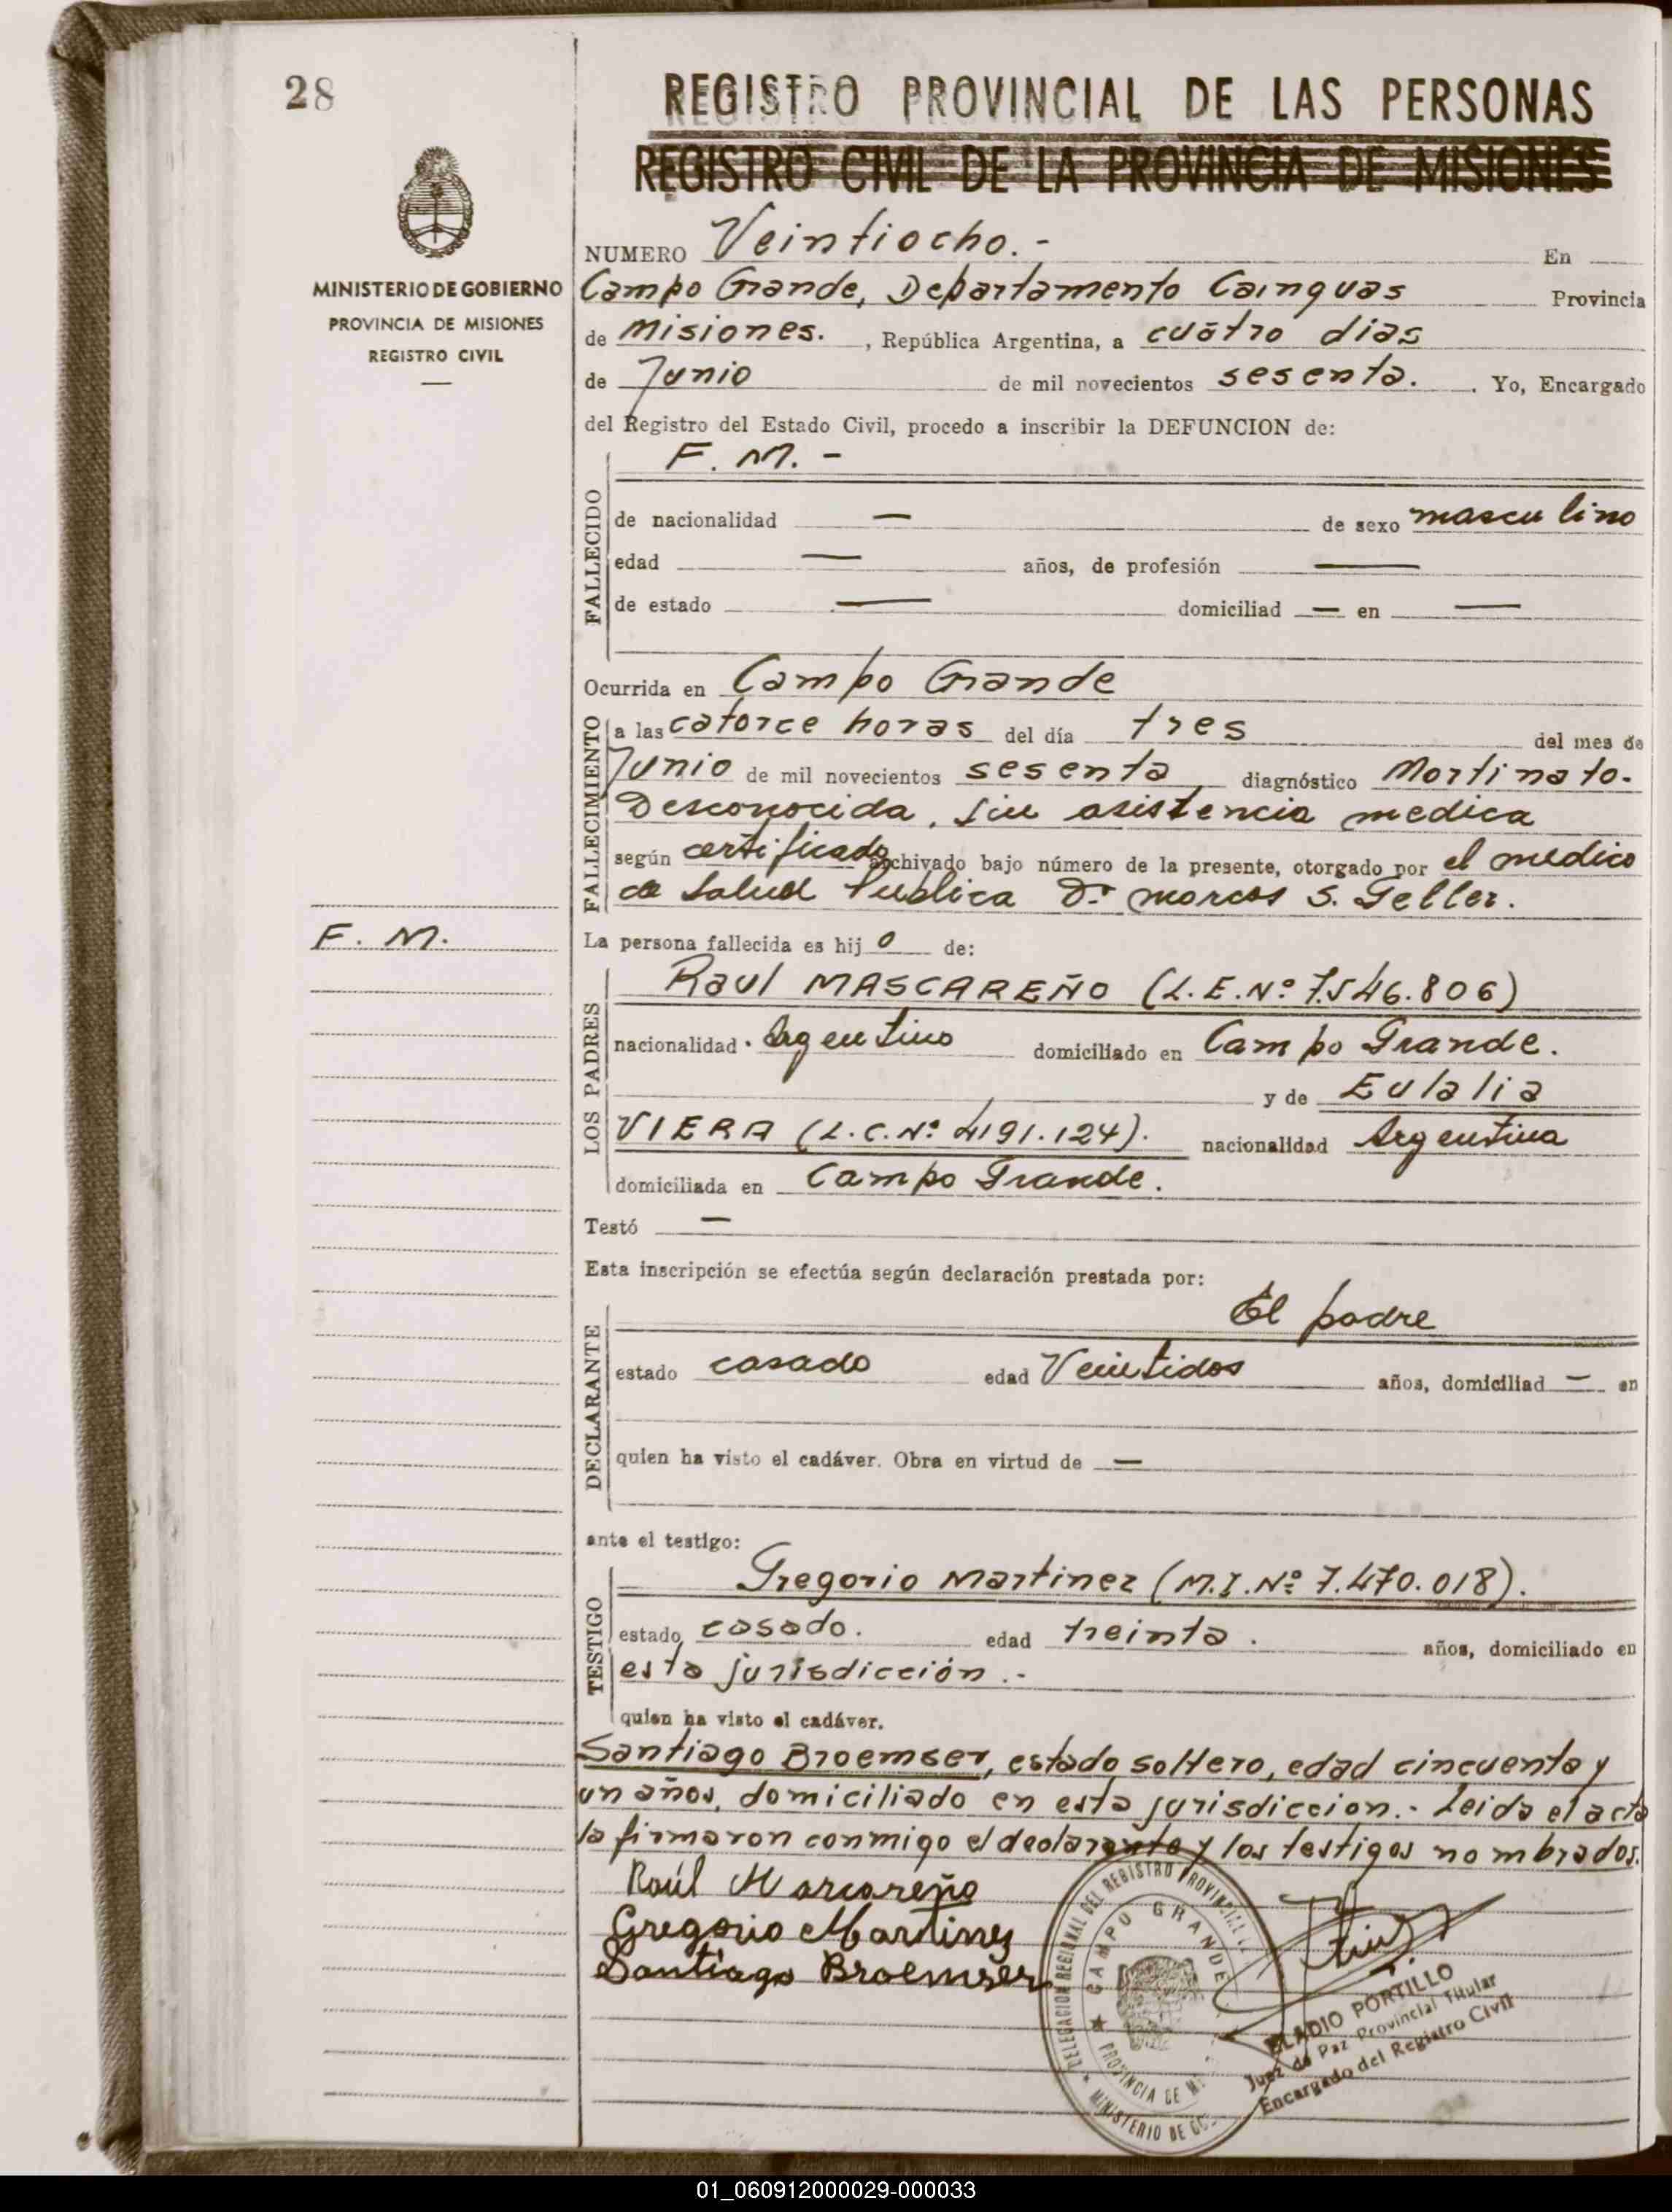 28
REGISTRO PROVINCIAL DE LAS PERSONAS
REGISTRO CIVIL DE LA PROVINCIA DE MISIONES
MINISTERIO DE GOBIERNO
PROVINCIA DE MISIONES
REGISTRO CIVIL
NUMERO Veintiocho.- En
Campo Grande, Departamento Cainguas Provincia
de Misiones. , República Argentina, a cuatro dias
de Junio de mil novecientos sesenta. . Yo, Encargado
del Registro del Estado Civil, procedo a inscribir la DEFUNCION de:
F. M. -
FALLECIDO
de nacionalidad — de sexo masculino
edad — años, de profesión —
de estado — domiciliad — en —
Ocurrida en Campo Grande
FALLECIMIENTO
a las catorce horas del día tres del mes de
Junio de mil novecientos sesenta diagnóstico Mortinato-
Desconocida, sin asistencia medica
según certificado archivado bajo número de la presente, otorgado por el medico
de Salud Publica Dr. Marcos S. Geller.
F. M.
La persona fallecida es hij o de:
LOS PADRES
Raul MASCAREÑO (L.E.Nº 7.546.806)
nacionalidad Argentino domiciliado en Campo Grande.
y de Eulalia
VIERA (L.C.Nº 4191.124). nacionalidad Argentina
domiciliada en Campo Grande.
Testó —
Esta inscripción se efectúa según declaración prestada por:
DECLARANTE
El padre
estado casado edad Veintidos años, domiciliad — en
quien ha visto el cadáver. Obra en virtud de —
ante el testigo:
TESTIGO
Gregorio Martinez (M.I.Nº 7.470.018).
estado casado. edad treinta. años, domiciliado en
esta jurisdicción.-
quien ha visto el cadáver.
Santiago Broemser, estado soltero, edad cincuenta y
un años, domiciliado en esta jurisdiccion.- Leida el acta
la firmaron conmigo el declarante y los testigos nombrados.
Raúl Marcareño
Gregorio Martinez
Santiago Broemser
DELEGACION REGIONAL DEL REGISTRO PROVINCIAL
CAMPO GRANDE
PROVINCIA DE
MINISTERIO DE
ELADIO PORTILLO
Juez de Paz Provincial Titular
Encargado del Registro Civil
01_060912000029-000033